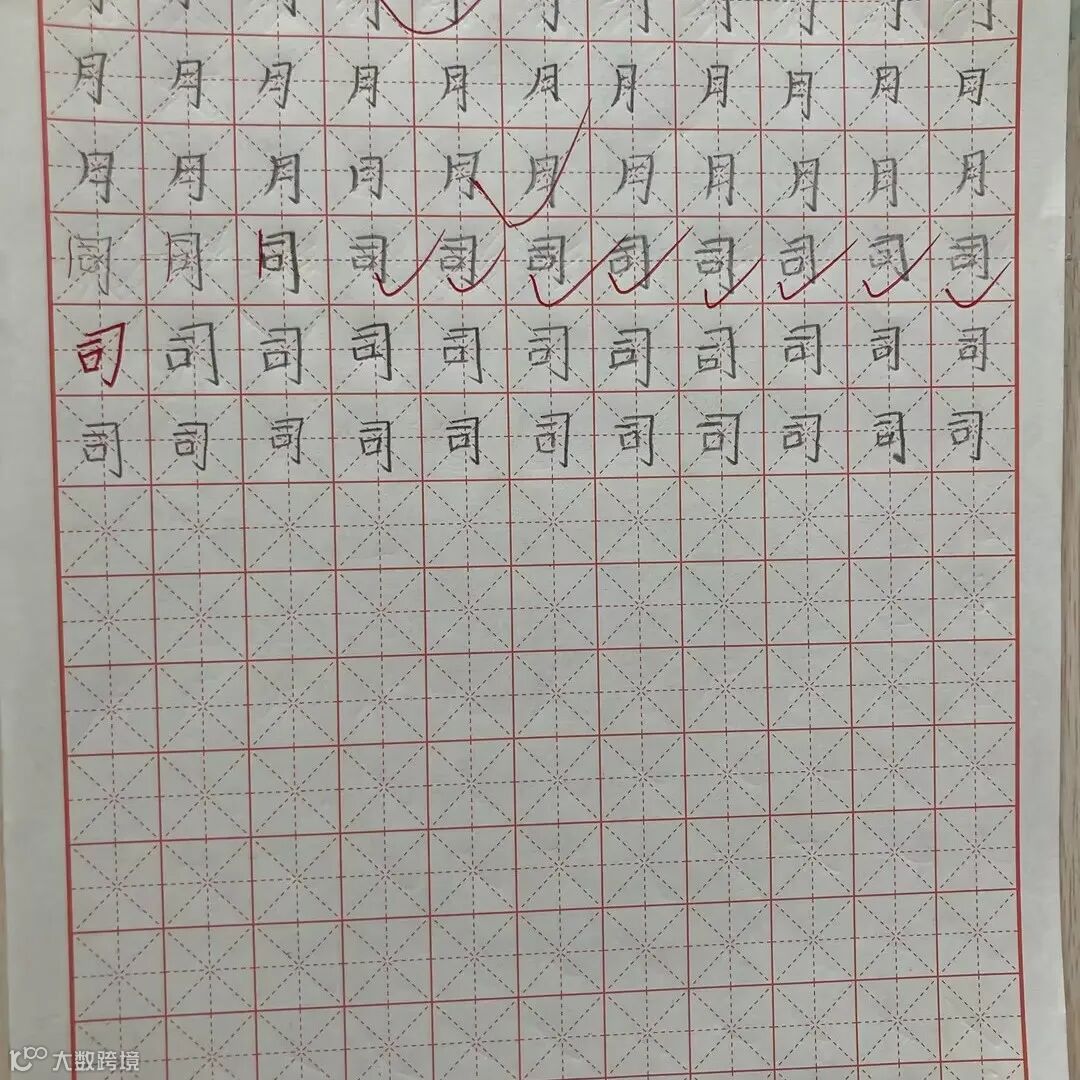 月月月月月月月月月月月
月月月月月月月月月月月
同同同司司司司司司司司
司司司司司司司司司司司
司司司司司司司司司司司
大数跨境